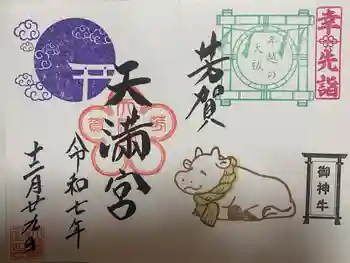 幸先詣
年越の
大祓
芳賀
天満宮
令和七年
十二月廿九日
御神牛